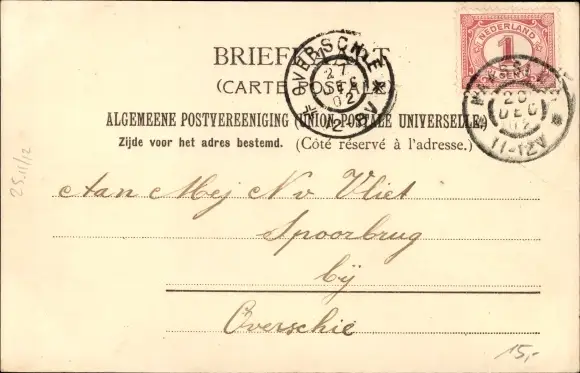 NEDERLAND
1
CENT
BRIEFKAART
(CARTE POSTALE)
OVERSCHIE
27
DEC
02
12-
WASSENAAR
DEC
11-12V
ALGEMEENE POSTVEREENIGING (UNION POSTALE UNIVERSELLE)
Zijde voor het adres bestemd. (Côté réservé à l'adresse.)
25.11/12
Aan Mej N v Vliet
Spoorbrug
bij
Overschie
15,-